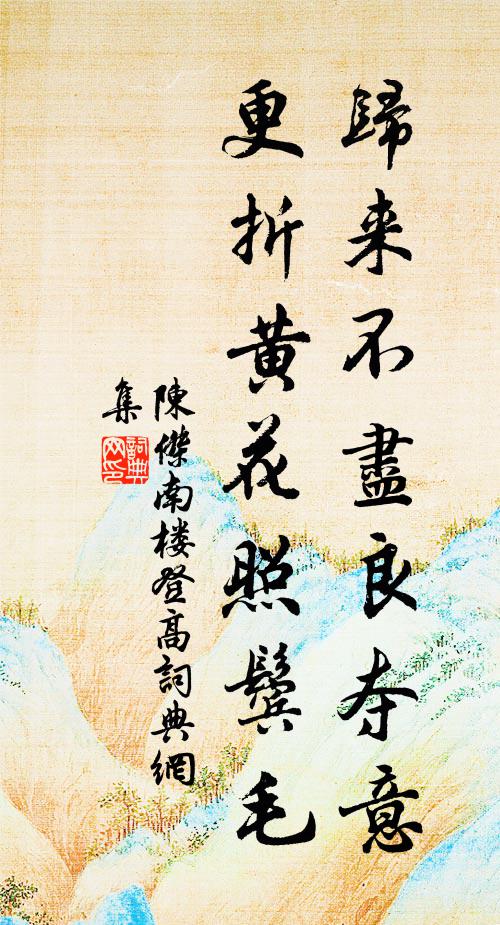 歸来不盡良夺意
更折黄花照鬢毛
陳傑南楼登高詞典網
集
詞典
网印